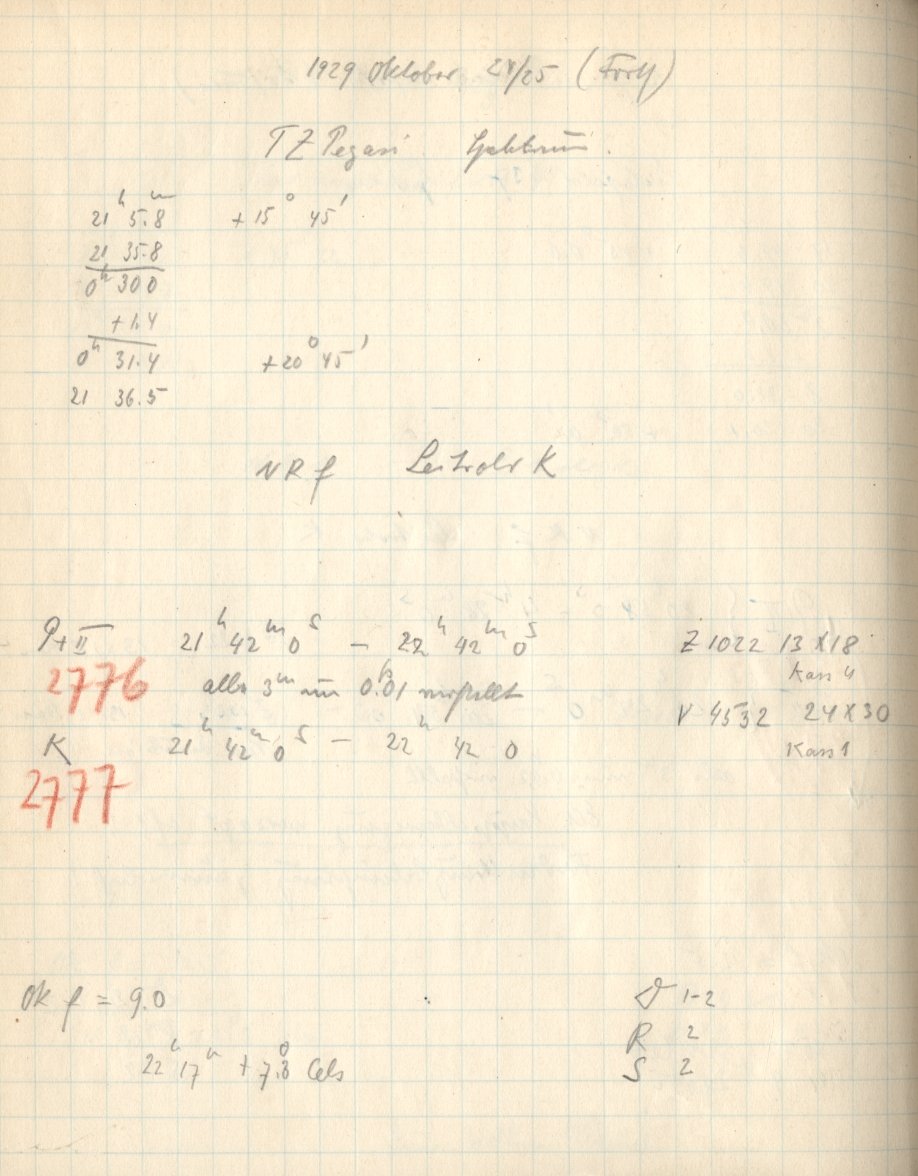 1929 Oktober 24/25 (Forts)
TZ Pegasi. Spektrum.
21ʰ 5.8ᵐ +15° 45'
21 35.8
0ʰ 30 0
+1.4
0ʰ 31.4 +20° 45'
21 36.5
NR f Leitrohr K
P+II 21ʰ 42ᵐ 0ˢ – 22ʰ 42ᵐ 0ˢ Z 1022 13 X 18
Kass 4
2776 alle 3ᵐ um 0.01 verstellt
V 4532 24 X 30
K 21ʰ 42ᵐ 0ˢ – 22ʰ 42 0
Kass 1
2777
Ok f = 9.0 D 1-2
R 2
22ʰ 17ᵐ +7.8° Cels S 2